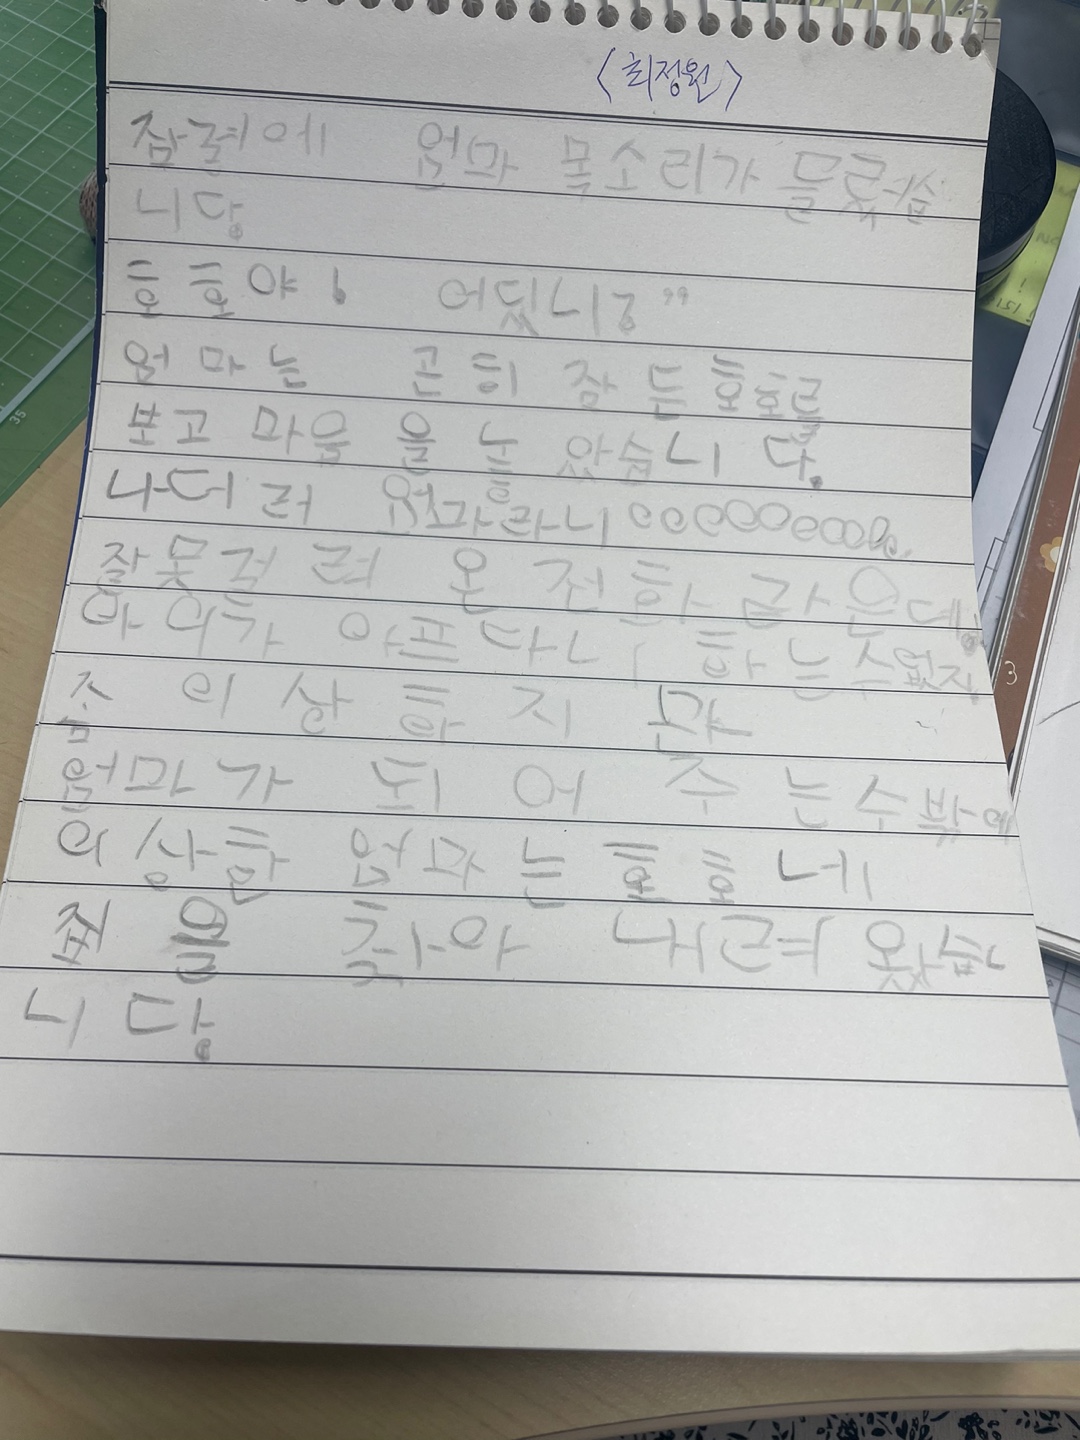 <최정원>
잠결에 엄마 목소리가 들렸습
니다.
호호야! 어딨니?"
엄마는 곤히 잠든 호호를
보고 마음을 놓았습니다.
나더러 엄마라니
잘못 걸려 온 전화 같은데.
아이가 아프다니 하는 수 없지.
좀 이상하지만
엄마가 되어 주는 수밖에
이상한 엄마는 호호네
집을 찾아 내려왔습
니다.